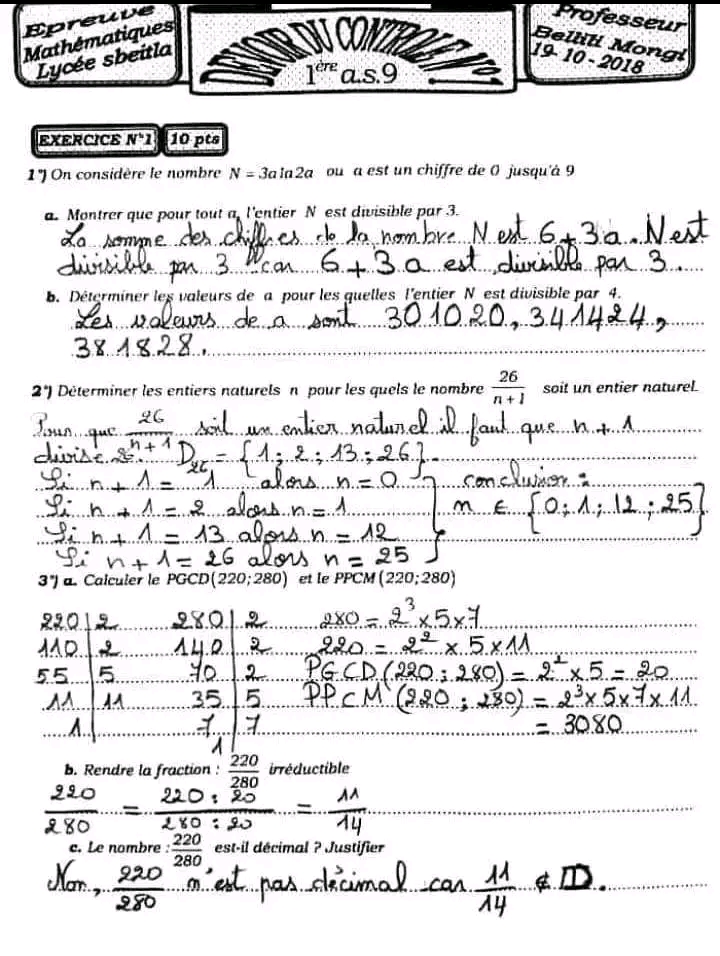 Epreuve
Mathématiques
Lycée sbeitla
DEVOIR DU CONTROLE N°1
1ère a.s.9
Professeur
Bellili Mongi
19-10-2018
EXERCICE N°1 10 pts
1°) On considère le nombre N = 3a1a2a ou a est un chiffre de 0 jusqu'à 9
a. Montrer que pour tout a, l'entier N est divisible par 3.
La somme des chiffres de la nombre N est 6+3a. N est
divisible par 3 car 6+3a est divisible par 3.
b. Déterminer les valeurs de a pour les quelles l'entier N est divisible par 4.
Les valeurs de a sont 301020, 341424,
381828.
2°) Déterminer les entiers naturels n pour les quels le nombre 26/(n+1) soit un entier naturel.
Pour que 26/(n+1) soit un entier naturel il faut que n+1
divise 26. D26 = {1; 2; 13; 26}.
Si n+1 = 1 alors n = 0 conclusion:
Si n+1 = 2 alors n = 1 n ∈ {0; 1; 12; 25}.
Si n+1 = 13 alors n = 12
Si n+1 = 26 alors n = 25
3°) a. Calculer le PGCD(220;280) et le PPCM(220;280)
220 | 2 280 | 2 280 = 2³×5×7
110 | 2 140 | 2 220 = 2²×5×11
55 | 5 70 | 2 PGCD(220;280) = 2²×5 = 20
11 | 11 35 | 5 PPCM(220;280) = 2³×5×7×11
1 | 7 | 7 = 3080
1
b. Rendre la fraction : 220/280 irréductible
220/280 = 220:20/280:20 = 11/14
c. Le nombre : 220/280 est-il décimal ? Justifier
Non, 220/280 n'est pas décimal car 11/14 ∉ ID.